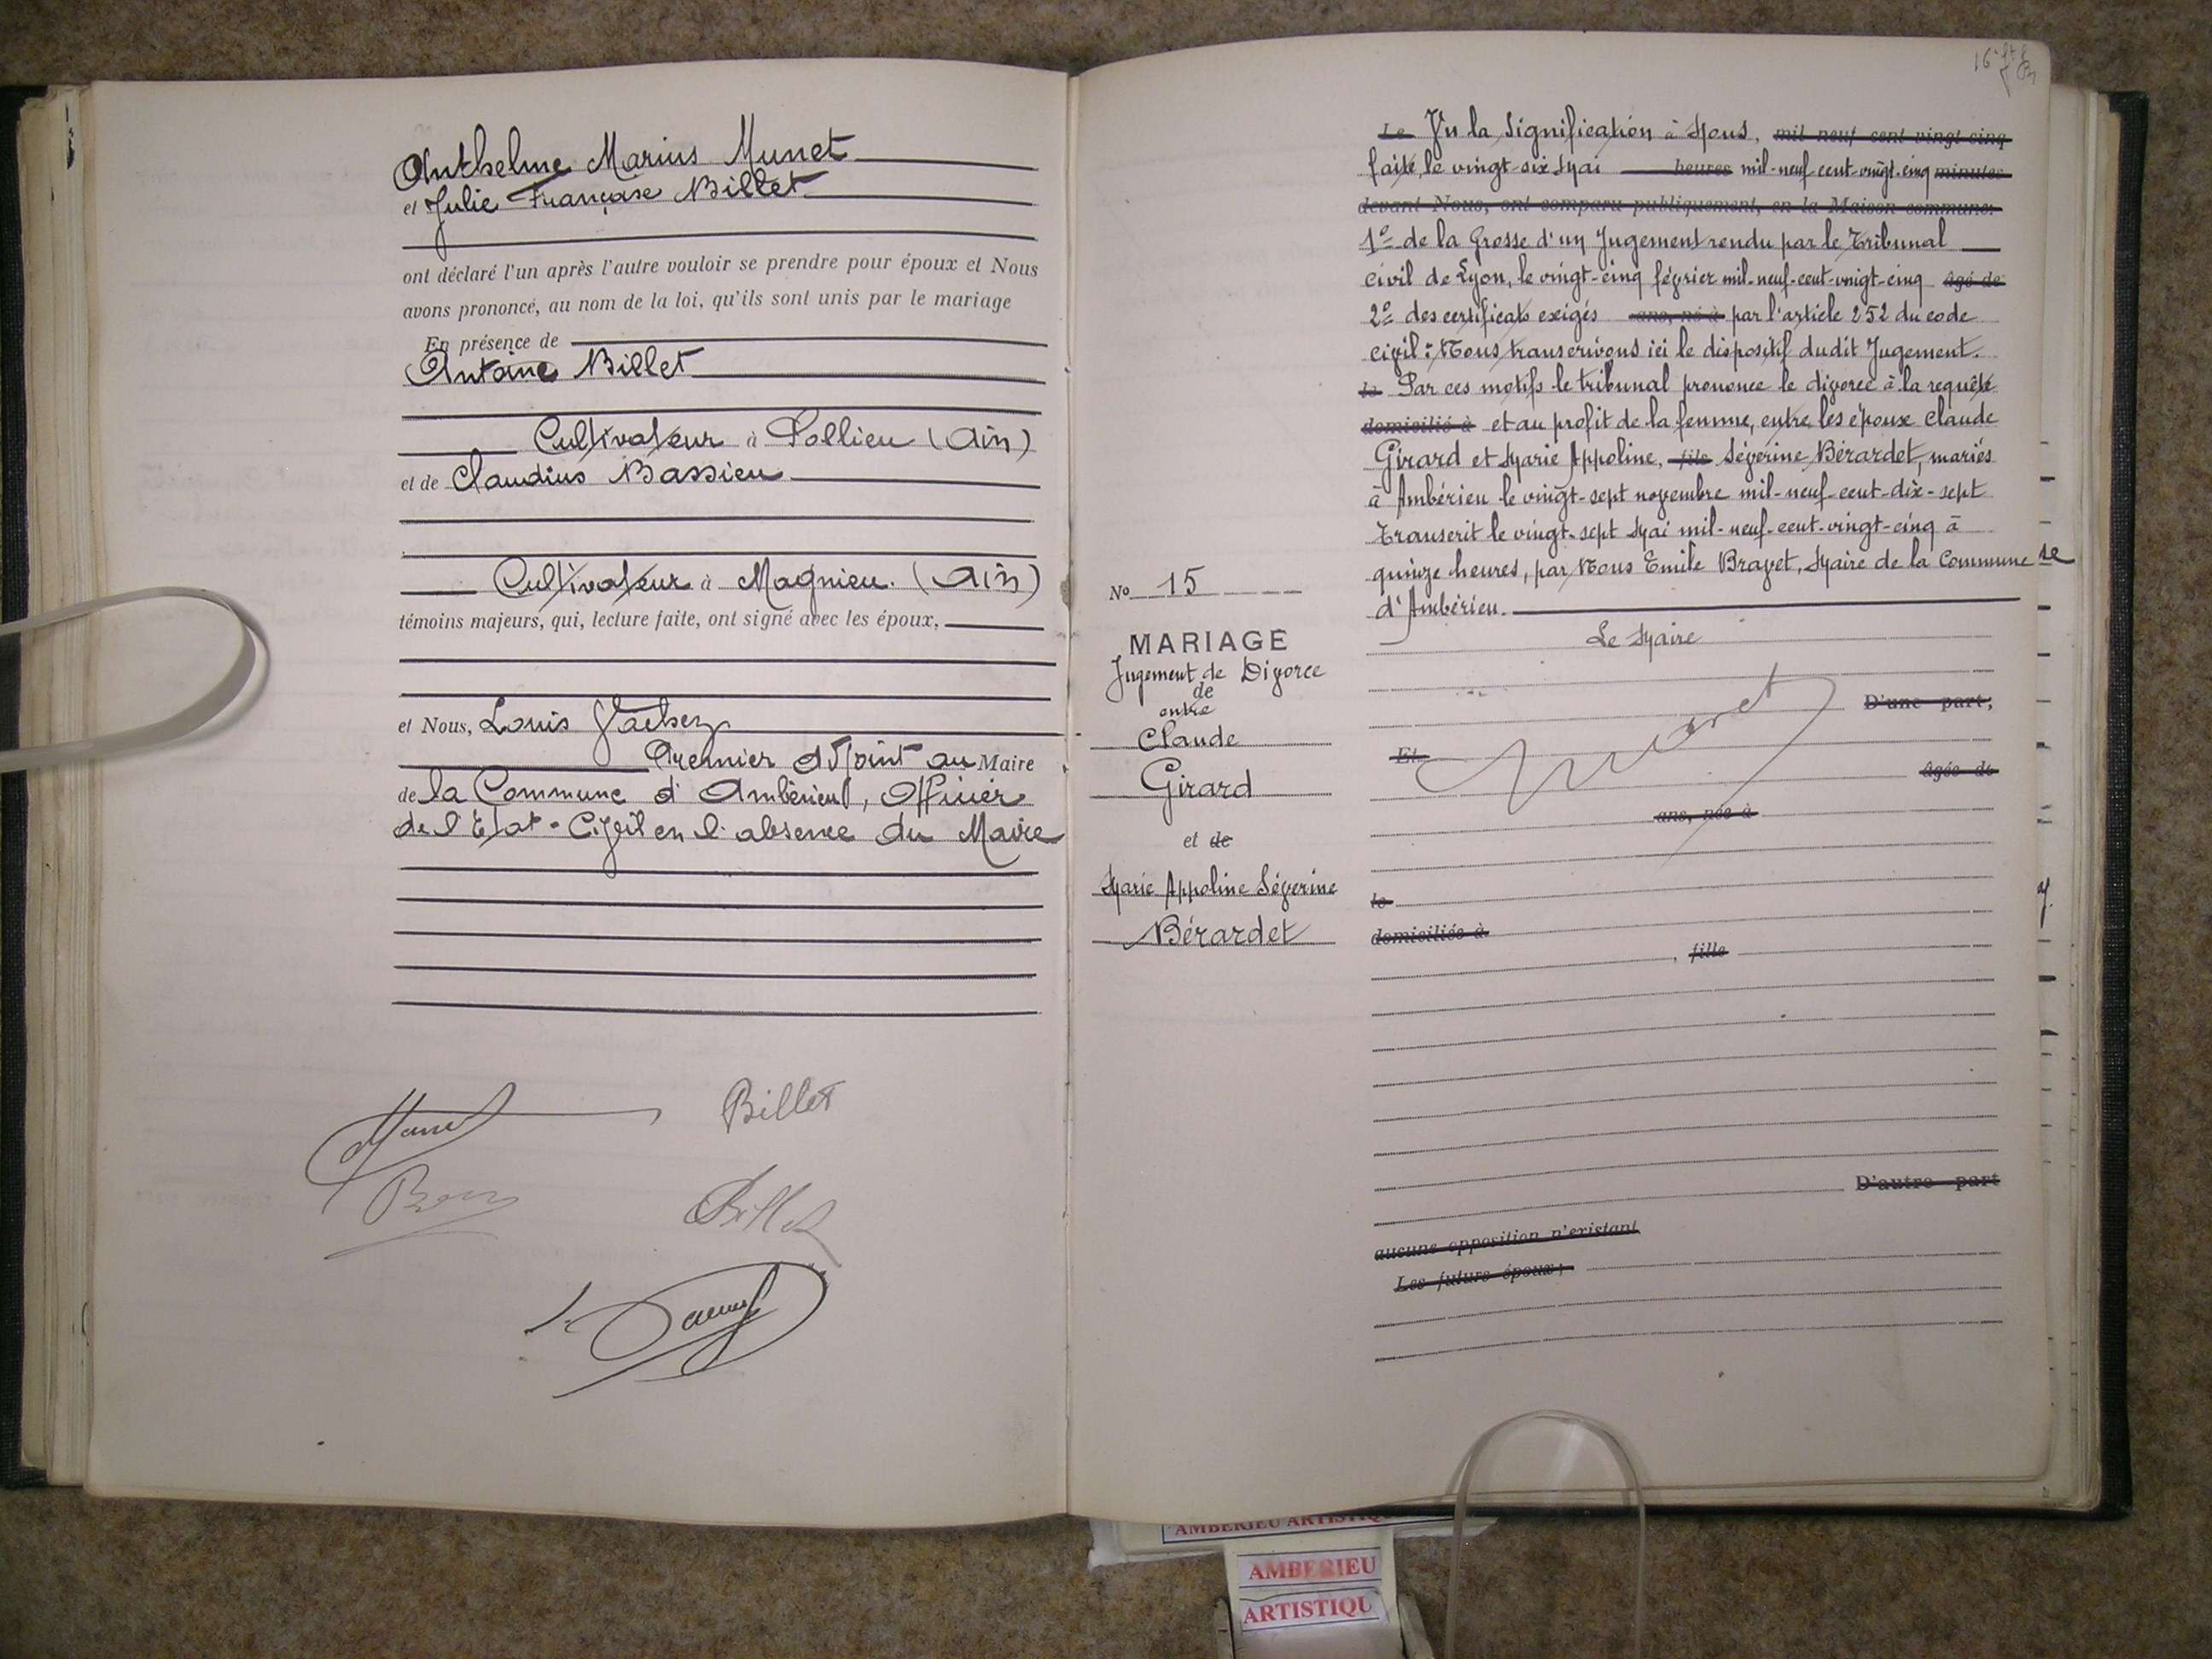 Anthelme Marius Munet
et Julie Françoise Billet
ont déclaré l'un après l'autre vouloir se prendre pour époux et Nous
avons prononcé, au nom de la loi, qu'ils sont unis par le mariage
En présence de
Antoine Billet
Cultivateur à Pollieu (Ain)
et de Claudius Bassieu
Cultivateur à Magnieu. (Ain)
témoins majeurs, qui, lecture faite, ont signé avec les époux,
et Nous, Louis Vachez
Premier Adjoint au Maire
de la Commune d'Ambérieu, Officier
de l'Etat-Civil en l'absence du Maire
Billet
Billet
No 15
MARIAGE
Jugement de Divorce
de
entre
Claude
Girard
et de
Marie Appoline Séverine
Bérardet
Le Vu la Signification à Nous, mil neuf cent vingt-cinq
faite, le vingt-six Mai heures mil-neuf-cent-vingt-cinq minutes
devant Nous, ont comparu publiquement, en la Maison commune:
1º de la Grosse d'un Jugement rendu par le Tribunal
civil de Lyon, le vingt-cinq février mil-neuf-cent-vingt-cinq âgé de
2º des certificats exigés ans, né à par l'article 252 du code
civil: Nous transcrivons ici le dispositif dudit Jugement.
le Par ces motifs le tribunal prononce le divorce à la requête
domicilié à et au profit de la femme, entre les époux Claude
Girard et Marie Appoline, fils Séverine Bérardet, mariés
à Ambérieu le vingt-sept novembre mil-neuf-cent-dix-sept
Transcrit le vingt-sept Mai mil-neuf-cent-vingt-cinq à
quinze heures, par Nous Emile Bravet, Maire de la Commune
d'Ambérieu.
Le Maire
D'une part;
Et
âgée de
ans, née à
le
domiciliée à
, fille
D'autre part
aucune opposition n'existant
Les futurs époux;
AMBERIEU ARTISTIQ
AMBERIEU
ARTISTIQU